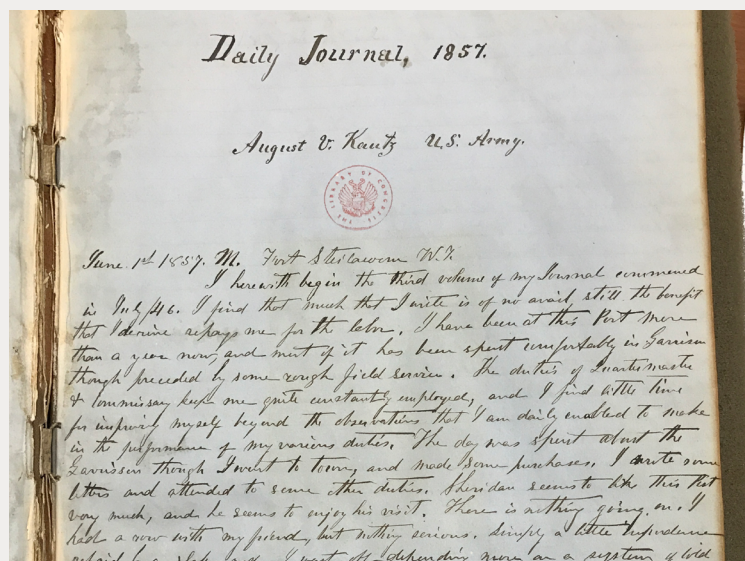 Daily Journal, 1857.
August V. Kautz U.S. Army.
THE LIBRARY OF CONGRESS
June 1st 1857. M. Fort Steilacoom W.T.
I herewith begin the third volume of my Journal commenced
in July /46. I find that much that I write is of no avail, still the benefit
that I derive repays me for the labor. I have been at this Post more
than a year now, and most of it has been spent comfortably in Garrison
though preceded by some rough field service. The duties of Quartermaster
& Commissary keep me quite constantly employed, and I find little time
for improving myself beyond the observations that I am daily enabled to make
in the performance of my various duties. The day was spent about the
Garrison though I went to town, and made some purchases. I wrote some
letters and attended to some other duties. Sheridan seems to like this Post
very much, and he seems to enjoy his visit. There is nothing going on. I
had a row with my friend, but nothing serious. Simply a little impudence
repaid by a slap and I went off depending more on a system of cold